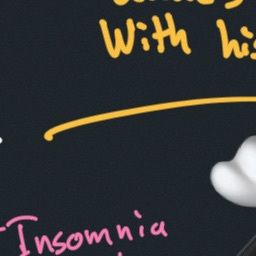 With his
Insomnia